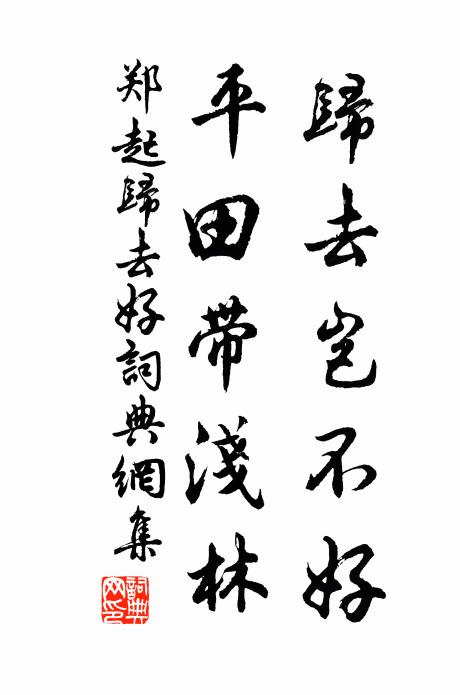 歸去豈不好
平田带淺林
郑起歸去好詞典網集
詞典網印